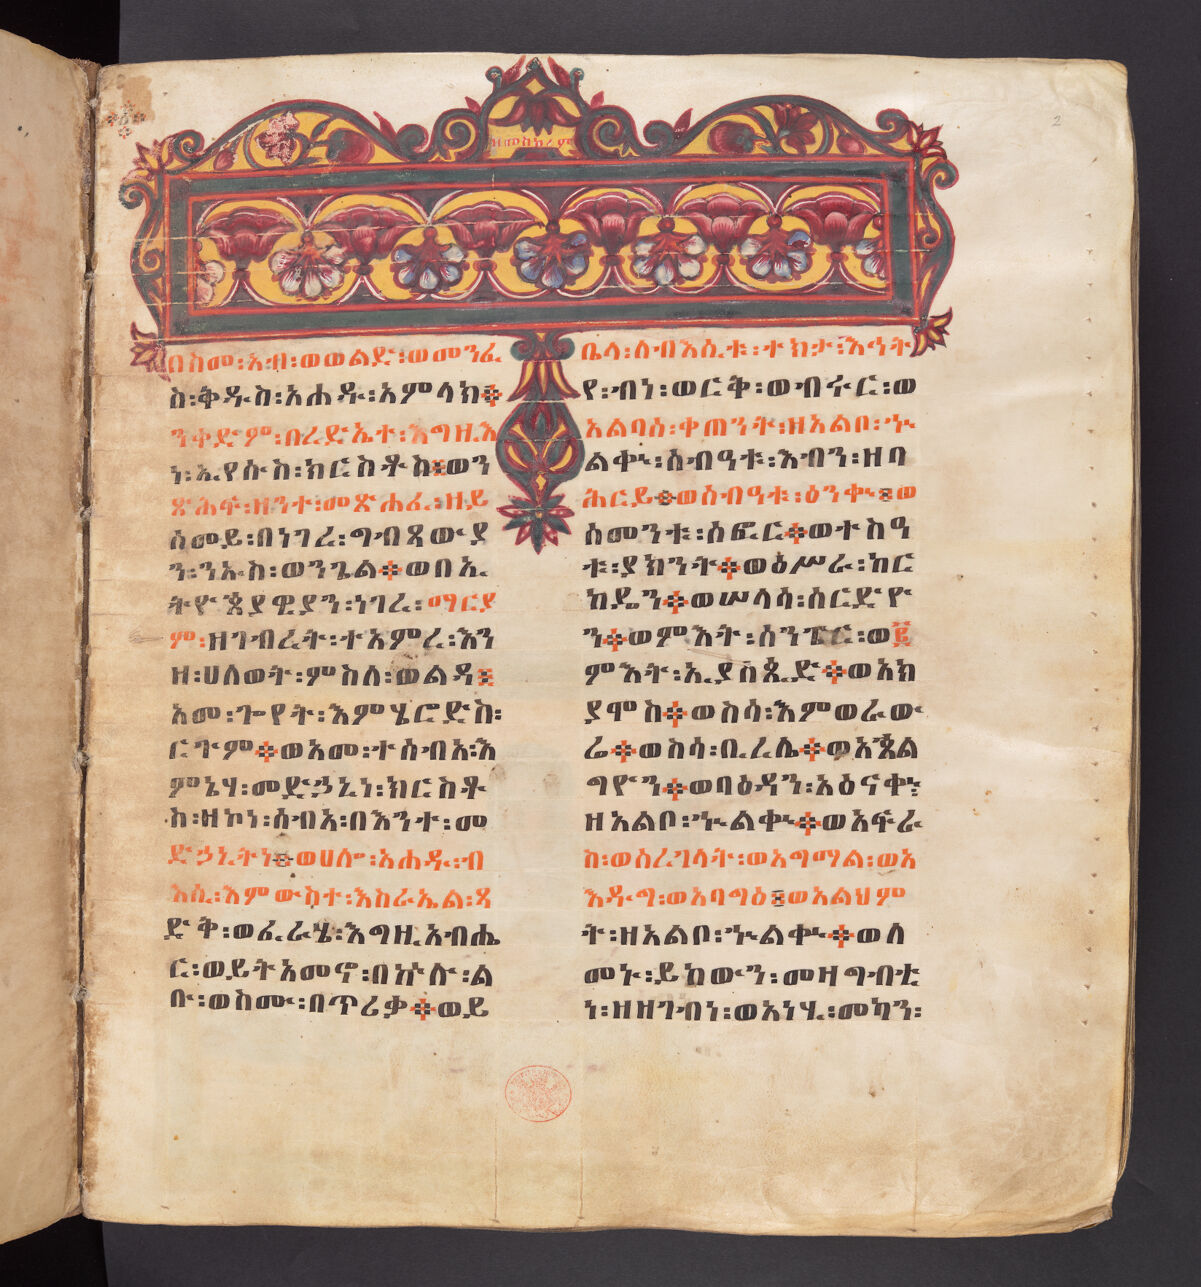 በስመ፡አብ፡ወወልድ፡ወመንፈ
ስ፡ቅዱስ፡አሐዱ፡አምላክ፨
ንቀድም፡በረድኤተ፡እግዚእ
ነ፡ኢየሱስ፡ክርስቶስ፨ወን
ጽሕፍ፡ዘንተ፡መጽሐፈ፡ዘይ
ሰመይ፡በነገረ፡ግብጻውያ
ን፡ንኡስ፡ወንጌል፨ወበኢ
ትዮጵያዊያን፡ነገረ፡ማርያ
ም፡ዘገብረት፡ተአምረ፡እን
ዘ፡ሀለወት፡ምስለ፡ወልዳ፨
አመ፡ጐየት፡እምሄሮድስ፡
ርጉም፨ወአመ፡ተሰብአ፡እ
ምኔሃ፡መድኃኒነ፡ክርስቶ
ስ፡ዘኮነ፡ሰብአ፡በእንተ፡መ
ድኃኒትነ፨ወሀሎ፡አሐዱ፡ብ
እሲ፡እምውስተ፡እስራኤል፡ጻ
ድቅ፡ወፈራሄ፡እግዚአብሔ
ር፡ወይትአመኖ፡በኵሉ፡ል
ቡ፡ወስሙ፡በጥሪቃ፨ወይ
ቤላ፡ለብእሲቱ፡ተክታ፡እኅት
የ፡ብነ፡ወርቅ፡ወብሩር፡ወ
አልባሰ፡ቀጠንት፡ዘአልቦ፡ኍ
ልቍ፡ሰብዓቱ፡እብን፡ዘባ
ሕርይ፨ወሰብዓቱ፡ዕንቍ፨ወ
ስመንቱ፡ሶፎር፨ወተስዓ
ቱ፡ያክንት፨ወዕሥራ፡ከር
ከዴን፨ወሠላሳ፡ሰርድዮ
ን፨ወምእት፡ሰንፔር፡ወ፪
ምእት፡ኢያስጲድ፨ወአክ
ያሞስ፨ወስሳ፡እምወራው
ሬ፨ወስሳ፡ቢረሌ፨ወአጰል
ግዮን፨ወባዕዳን፡አዕናቍ፡
ዘአልቦ፡ኍልቍ፨ወአፍራ
ስ፡ወሰረገላት፡ወአግማል፡ወአ
እዱግ፡ወአባግዕ፨ወአልህም
ት፡ዘአልቦ፡ኍልቍ፨ወለ
መኑ፡ይከውን፡መዛግብቲ
ነ፡ዘዘገብነ፡ወአነሂ፡መካን፡